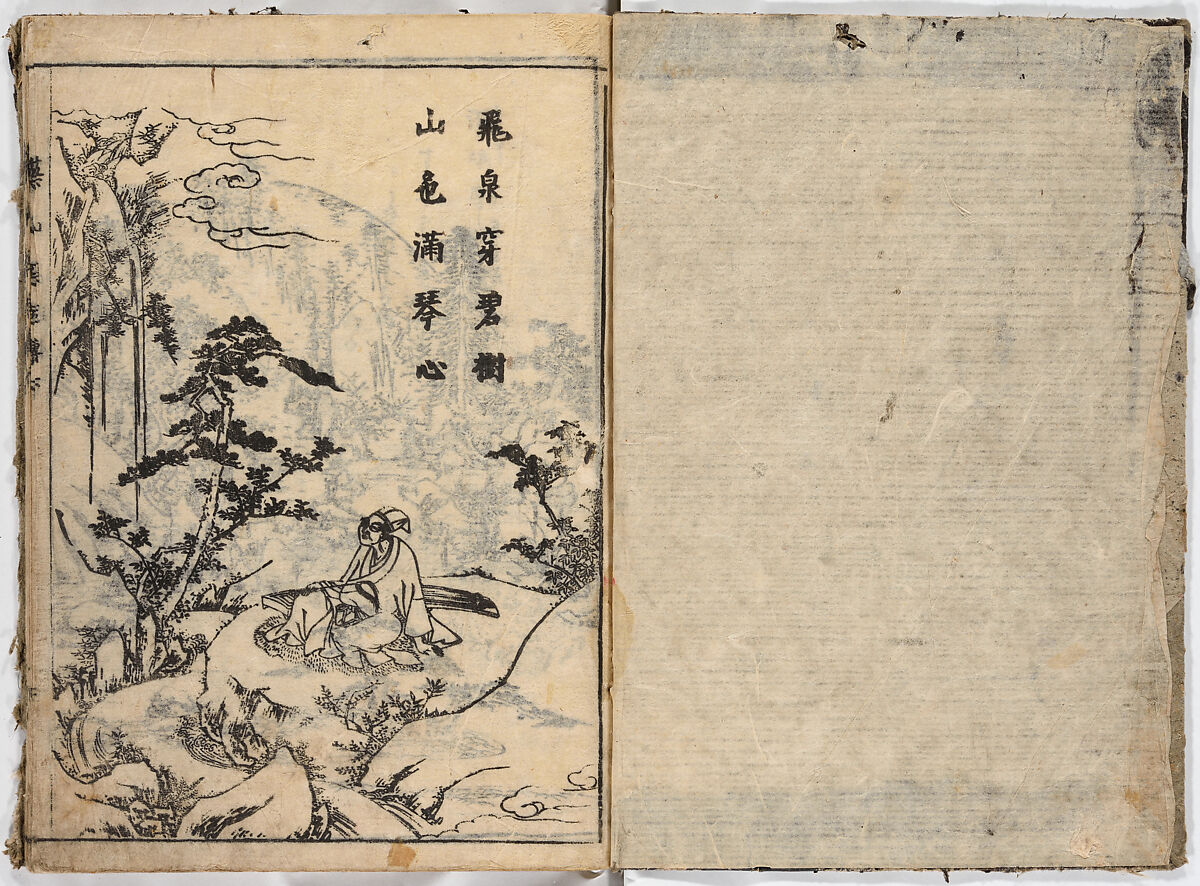 飛泉穿碧樹
山色滿琴心